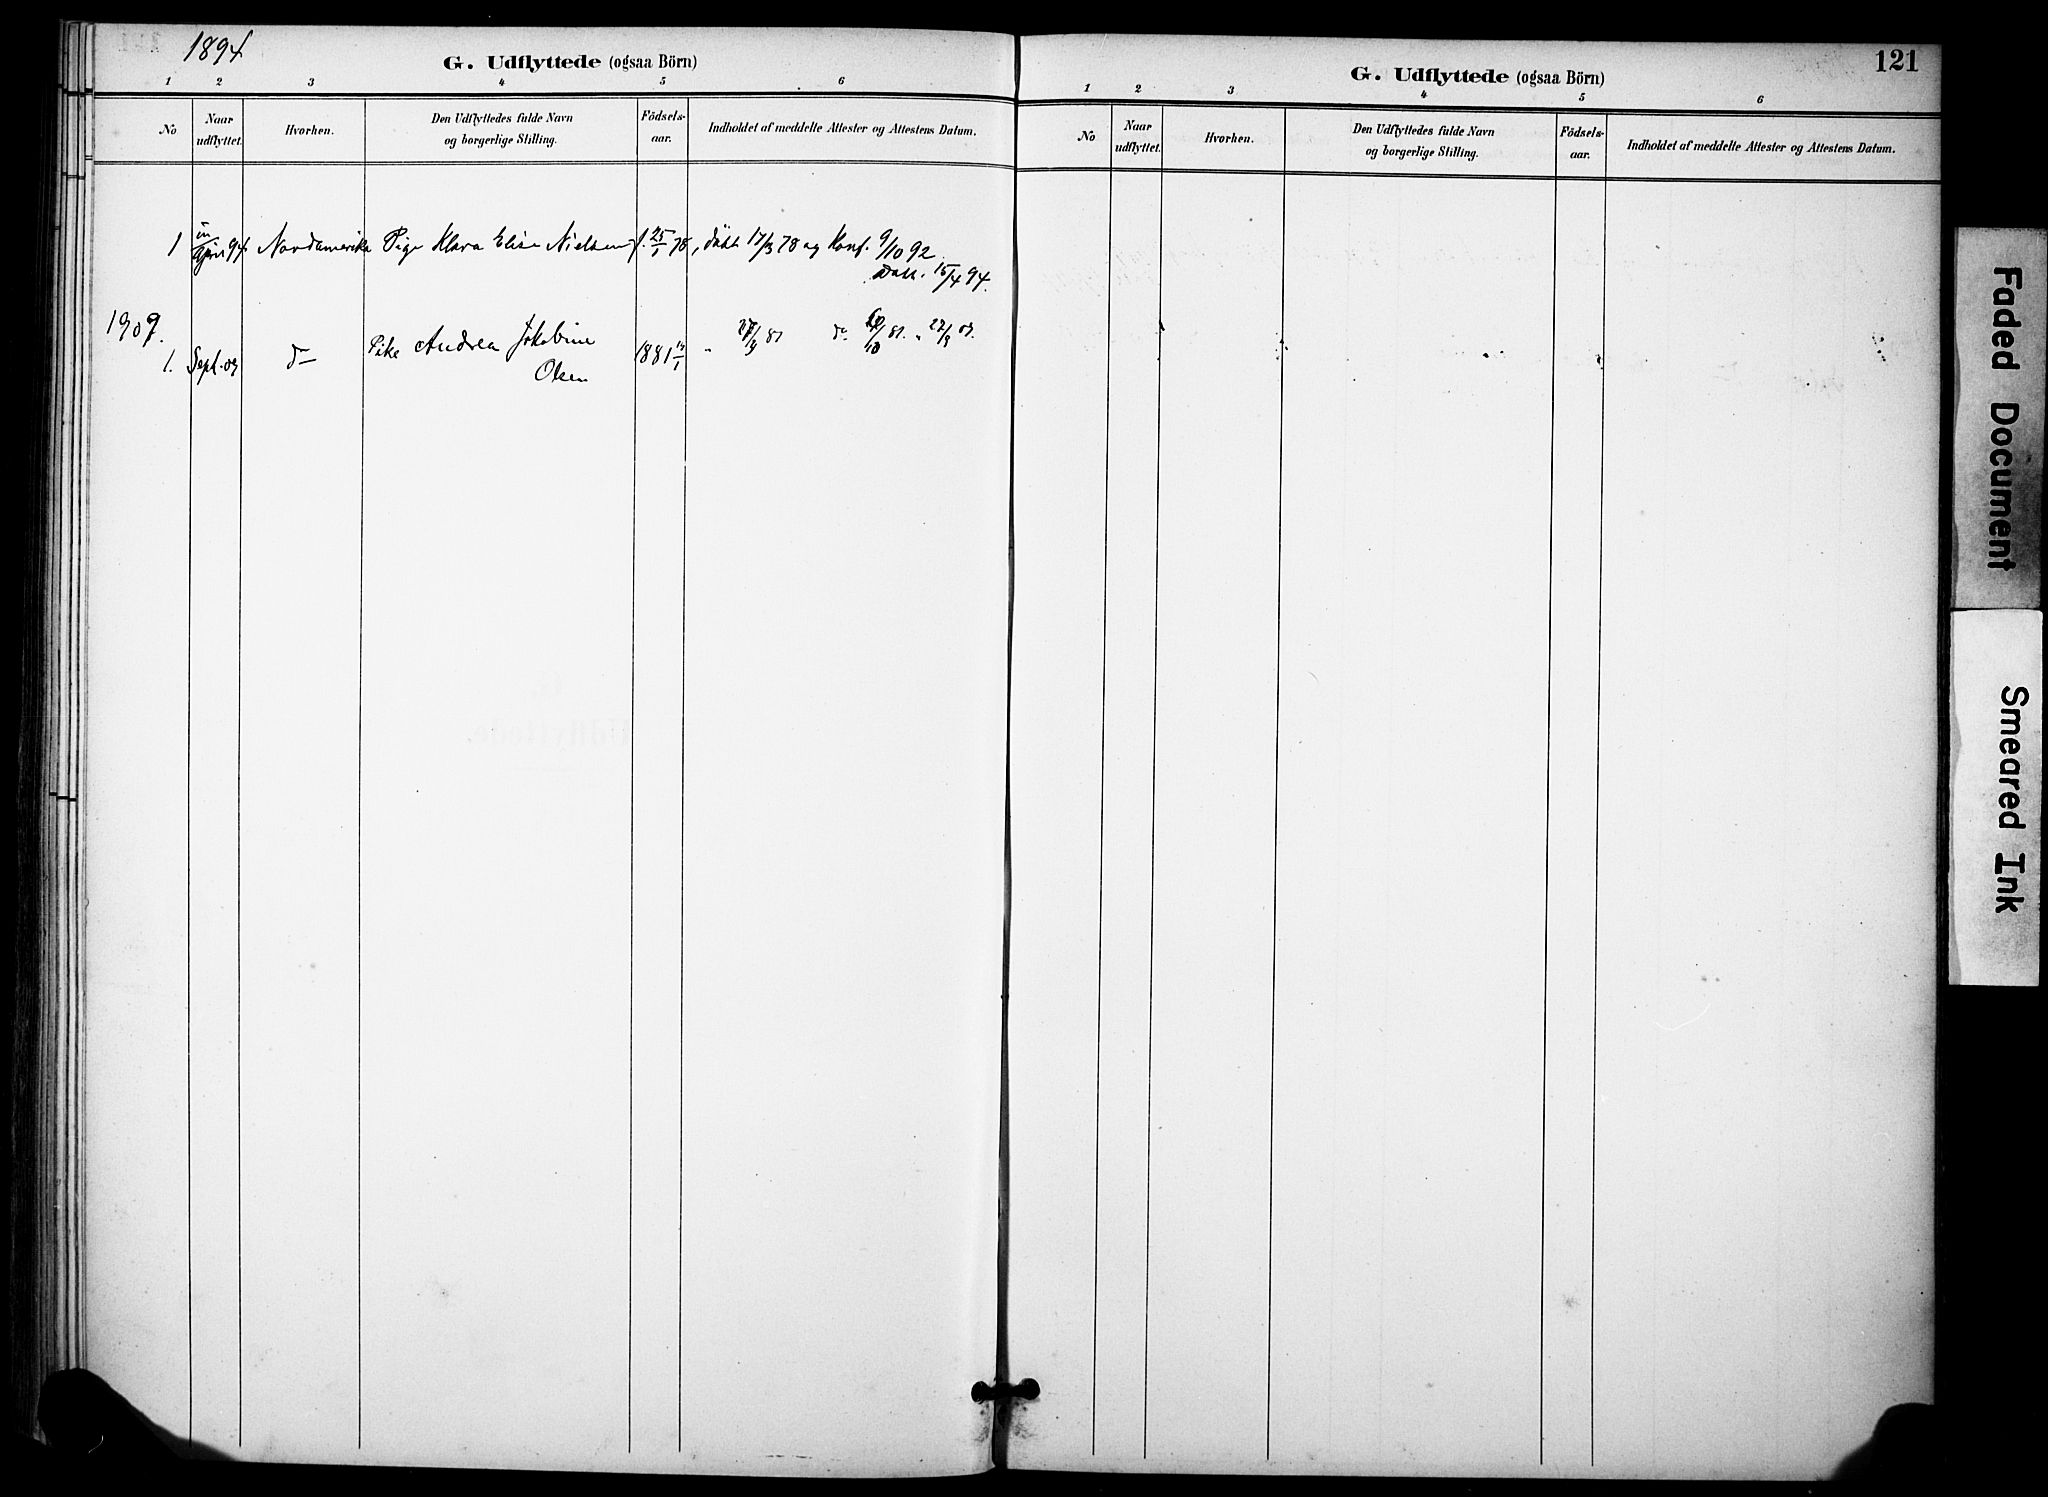 1894
G. Udflyttede (ogsaa Börn)
1 2 3 4 5 6
No
Naar udflyttet.
Hvorhen.
Den Udflyttedes fulde Navn
og borgerlige Stilling.
Födsels-
aar.
Indholdet af meddelte Attester og Attestens Datum.
1 April 94 Nordamerika Pige Klara Elise Nielsen f. 25/1 78, döbt 17/3 78 og Konf. 9/10 92
Datt. 15/4 94.
1907.
1. Sept. 07 do Pike Andrea Jakobine 1881
Olsen
121
G. Udflyttede (ogsaa Börn)
1 2 3 4 5 6
No
Naar
udflyttet.
Hvorhen.
Den Udflyttedes fulde Navn
og borgerlige Stilling.
Födsels-
aar.
Indholdet af meddelte Attester og Attestens Datum.
Faded Document
Smeared Ink